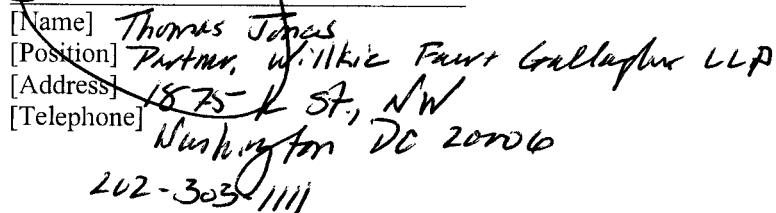 [Name] Thomas Jones
[Position] Partner, Willkie Farr + Gallagher LLP
[Address] 1875 K St, NW
[Telephone] Washington DC 20006
202-303-1111